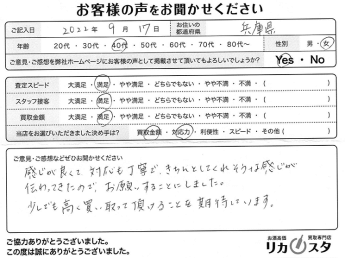 お客様の声をお聞かせください
ご記入日 2022年 9月 17日 お住いの都道府県 兵庫県
年齢 20代・30代・40代・50代・60代・70代・80代～ 性別 男・女
ご意見・ご感想を弊社ホームページにお客様の声として掲載させて頂いてもよろしいでしょうか? Yes・No
査定スピード 大満足・満足・やや満足・どちらでもない・やや不満・不満・( )
スタッフ接客 大満足・満足・やや満足・どちらでもない・やや不満・不満・( )
買取金額 大満足・満足・やや満足・どちらでもない・やや不満・不満・( )
当店をお選びいただきました決め手は? 買取金額・対応力・利便性・スピード・その他( )
ご意見・ご感想などぜひお聞かせください
感じが良くて 対応も丁寧で、きちんとしてくれそうな感じが
伝わってきたので、お願いすることにしました。
少しでも高く買い取って頂けることを期待しています。
ご協力ありがとうございました。
この度は誠にありがとうございました。
お酒高価買取専門店
リカスタ